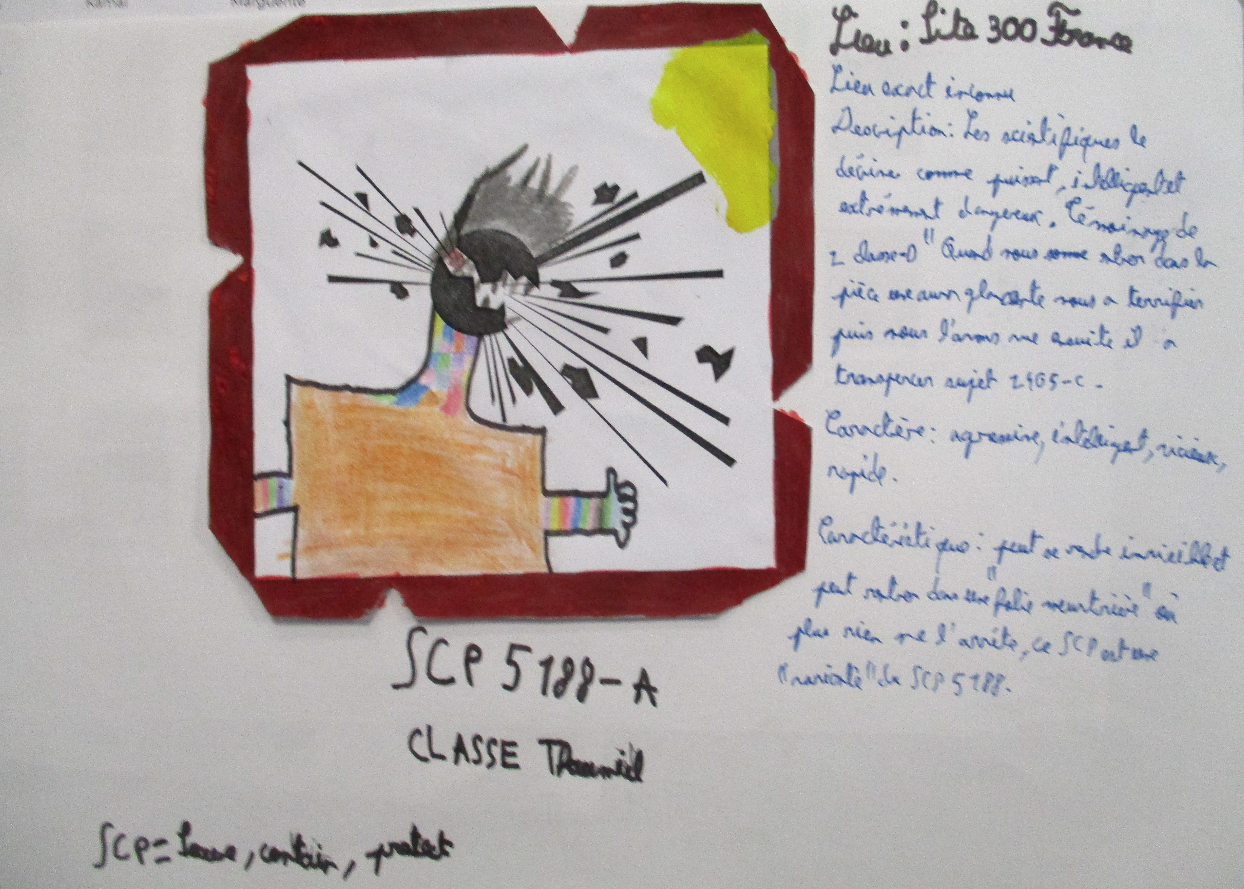 Kamal
Marguerite
Lieu : Site 300 France
Lieu exact inconnu
Description : Les scientifiques le
décrive comme puissant, intelligent et
extrément dangereux. Témoinage de
classe-D " Quand nous somme dans la
pièce une aura glacente nous a terrifier
puis nous l'avons vue ensuite il a
transpercer sujet 2465-c.
Caractère : agressive, intelligent, vicieux,
rapide.
peut se rendre invisible et
peut rentrer dans une "folie meurtrière" où
plus rien ne l'arrête, ce SCP est une
du SCP 5188.
SCP 5188-A
CLASSE
SCP = contain, protect